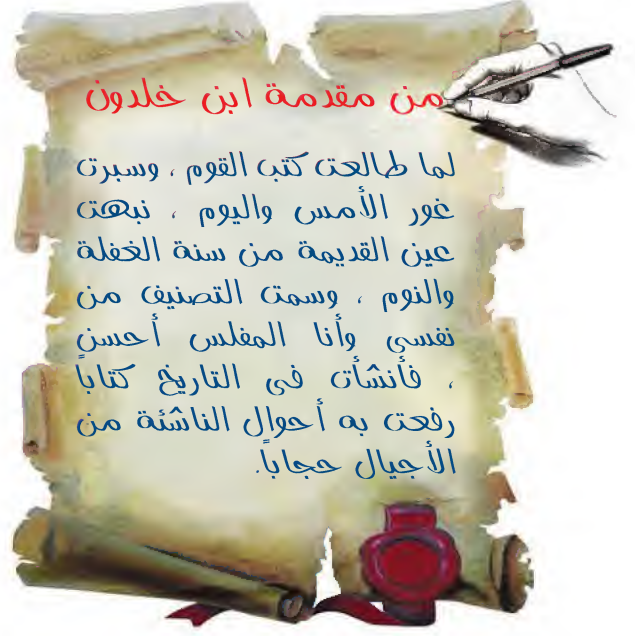 من مقدمة ابن خلدون
لما طالعت كتب القوم ، وسبرت
غور الأمس واليوم ، نبهت
عين القديمة من سنة الغفلة
والنوم ، وسمت التصنيف من
نفسي وأنا المفلس أحسن
، فأنشأت في التاريخ كتاباً
رفعت به أحوال الناشئة من
الأجيال حجاباً.